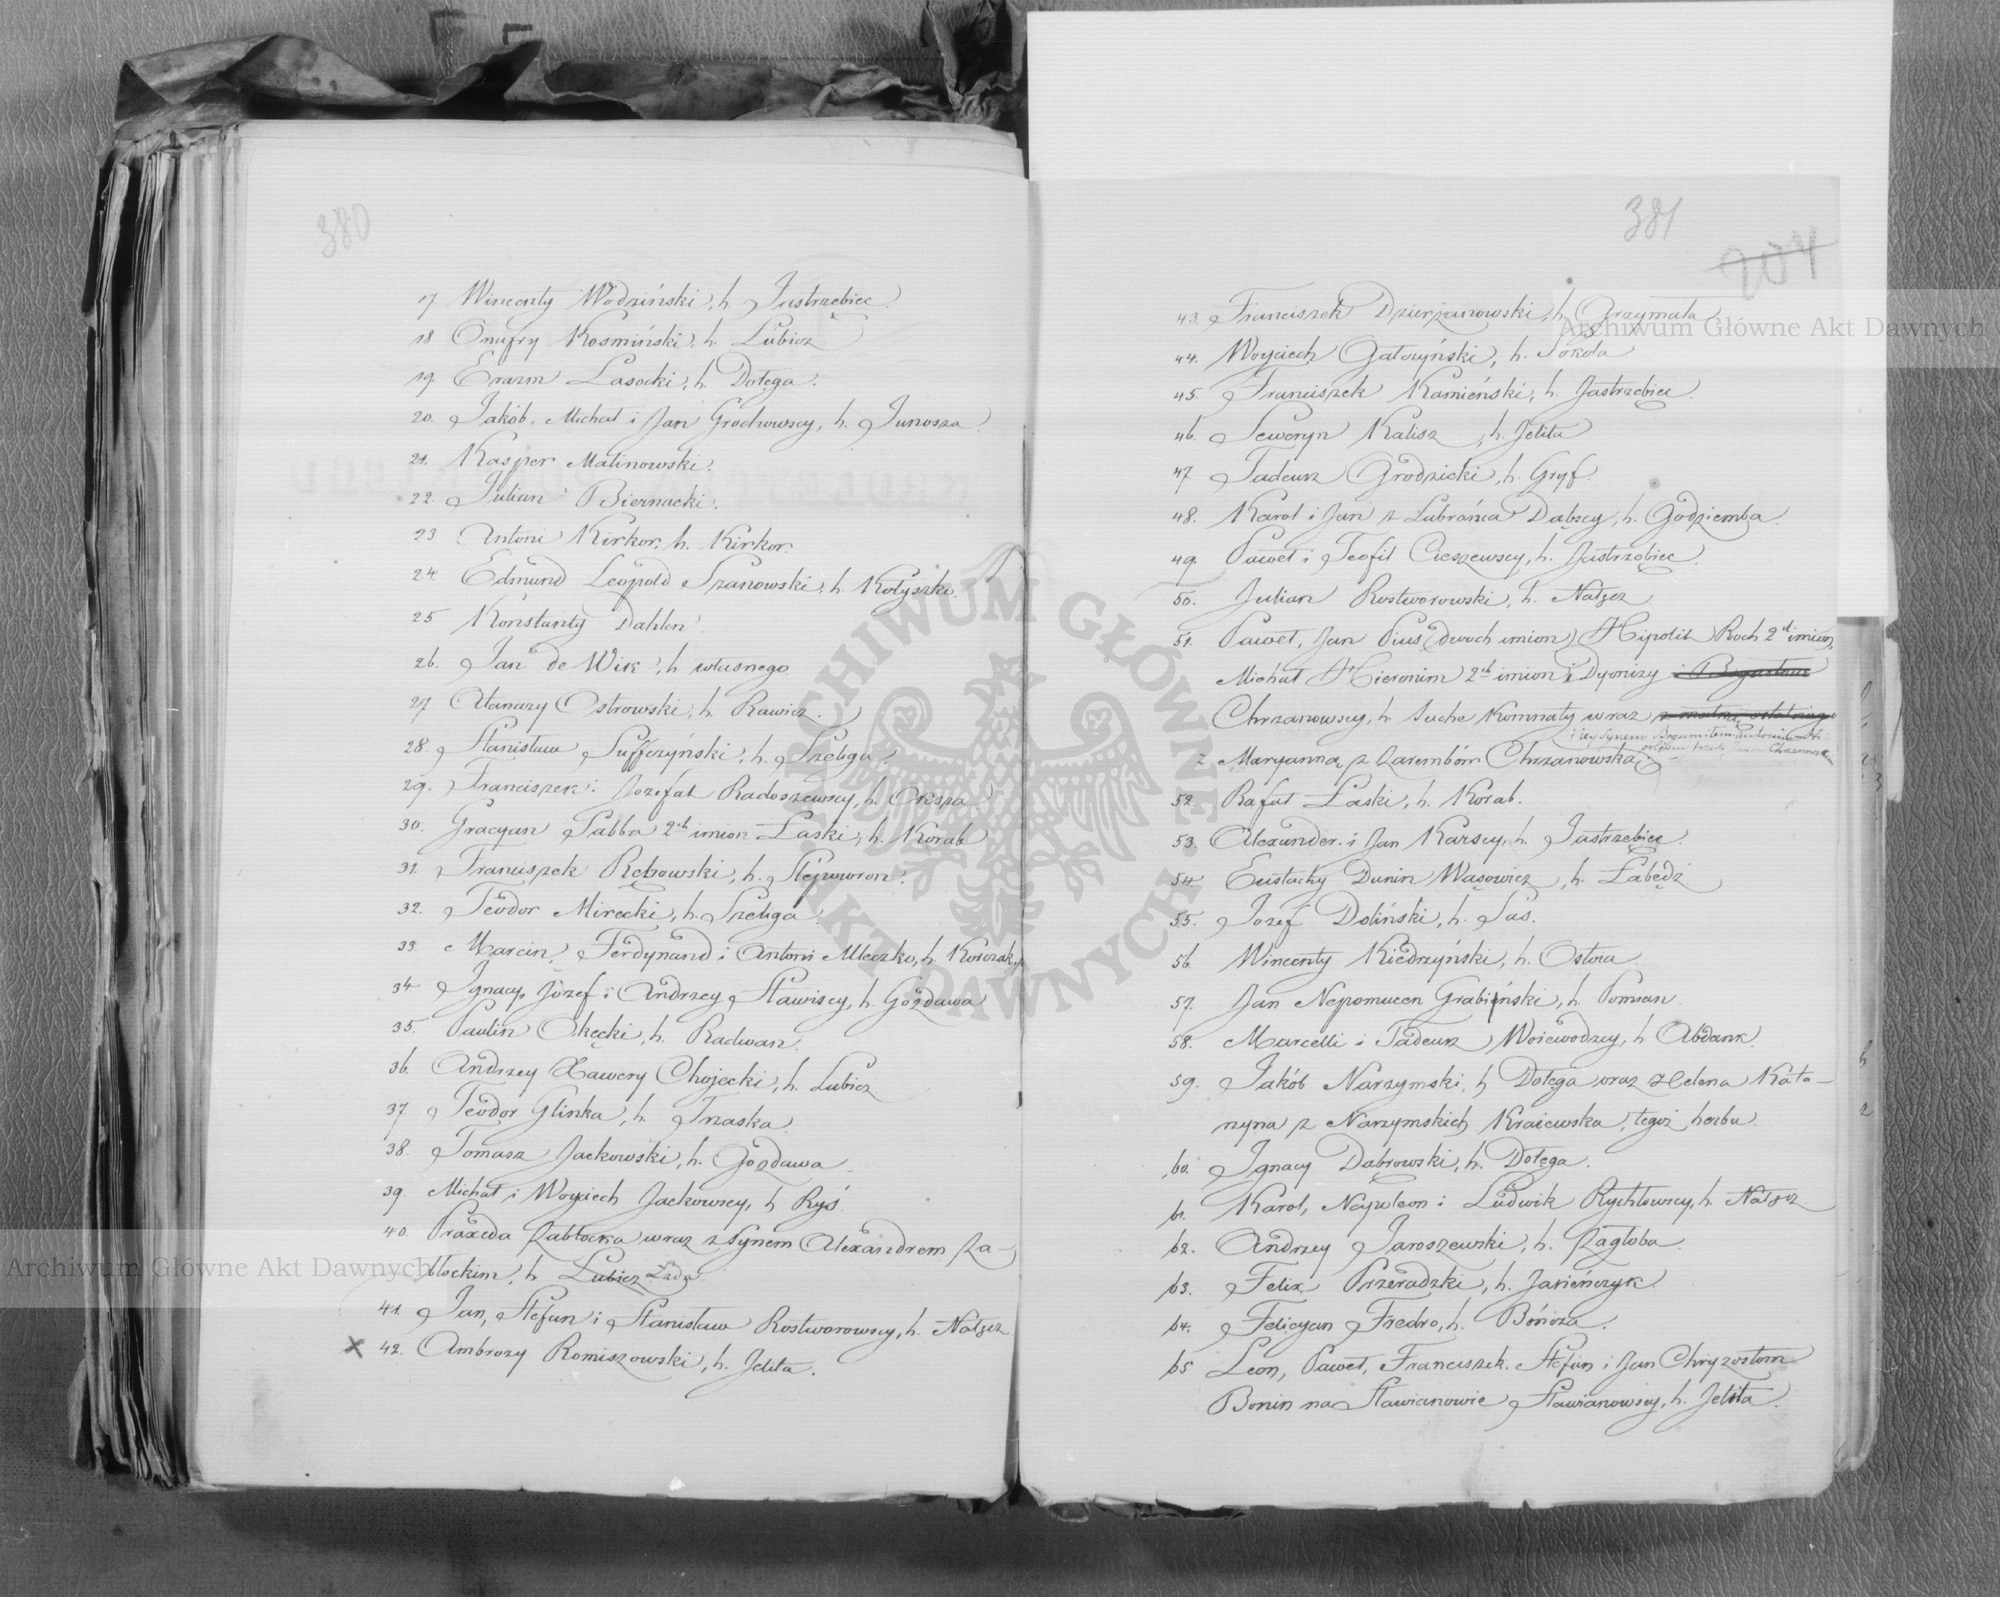 380
17 Wincenty Wodziński, h. Jastrzębiec.
18. Onufry Kosmiński, h. Lubicz
19. Erazm Lasocki, h. Dołęga.
20. Jakób, Michał i Jan Grochowscy, h. Junosza.
21. Kasper Malinowski.
22. Julian Biernacki.
23 Antoni Kirkor, h. Kirkor.
24. Edmund Leopold Szanowski, h. Kołyszki.
25 Konstanty Dahlen
26. Jan de Wik, h własnego
27 Atanazy Ostrowski, h. Rawicz.
28. Stanisław Suffczyński, h. Szeliga.
29. Franciszek i Jozefat Radoszewscy, h. Oksza.
30. Gracyan Sabba 2ch imion Łaski, h. Korab
31. Franciszek Rębowski, h. Slepowron.
32. Teodor Mirecki, h. Szeliga.
33. Marcin, Ferdynand i Antoni Mleczko, h. Korczak
34 Ignacy, Józef i Andrzey Sławiscy, h. Gozdawa
35. Paulin Okęcki, h. Radwan.
36. Andrzey Xawery Chojecki, h. Lubicz
37 Teodor Glinka, h. Trzaska.
38. Tomasz Jackowski, h. Gozdawa
39. Michał i Woyciech Jackowscy, h Ryś.
40. Praxeda Zabłocka wraz z synem Alexandrem Za-
błockim, h Lubicz Łada
41. Jan, Stefan i Stanisław Rostworowscy, h. Nałęcz
x 42. Ambrozy Romiszowski, h. Jelita.
381
204
43. Franciszek Dzierżanowski, h. Grzymała
44. Woyciech Gałczyński, h. Sokola
45. Franciszek Kamieński, h. Jastrzębiec.
46. Seweryn Kalisz, h. Jelita
47 Tadeusz Grodzicki, h. Gryf.
48. Karol i Jan z Lubrańca Dąbscy, h. Godziemba.
49. Paweł i Teofil Cieszewscy, h. Jastrzębiec.
50. Julian Rostworowski, h. Nałęcz
51. Paweł, Jan Pius (dwoch imion) Hipolit Roch 2ch imion,
Michał Hieronim 2ch imion i Dyonizy i Bogusław
Chrzanowscy, h Suche Komnaty wraz z matką
i iey synem
z Maryanną z Zarembów Chrzanowską.
52. Rafał Łaski, h. Korab.
53. Alexander i Jan Karscy, h. Jastrzębiec.
54. Eustachy Dunin Wąsowicz, h. Łabędź
55. Jozef Doliński, h. Sas.
56. Wincenty Kiedrzyński, h. Ostoia.
57. Jan Nepomucen Grabiński, h. Pomian.
58. Marcelli i Tadeusz Woiewodzcy, h Abdank.
59. Jakób Narzymski, h Dołęga oraz Helena Kata-
rzyna z Narzymskich Kraiewska, tegoż herbu.
60. Ignacy Dąbrowski, h. Dołęga.
61. Karol, Napoleon i Ludwik Rychłowscy, h. Nałęcz
62. Andrzey Jaroszewski, h. Zagłoba.
63. Felix Przeradzki, h. Jasieńczyk
64. Felicyan Fredro, h. Bończa.
65 Leon, Paweł, Franciszek, Stefan i Jan Chryzostom
Bonin na Sławianowie Sławianowscy, h. Jelita.
Archiwum Główne Akt Dawnych
Archiwum Główne Akt Dawnych
ARCHIWUM GŁÓWNE • AKT DAWNYCH •